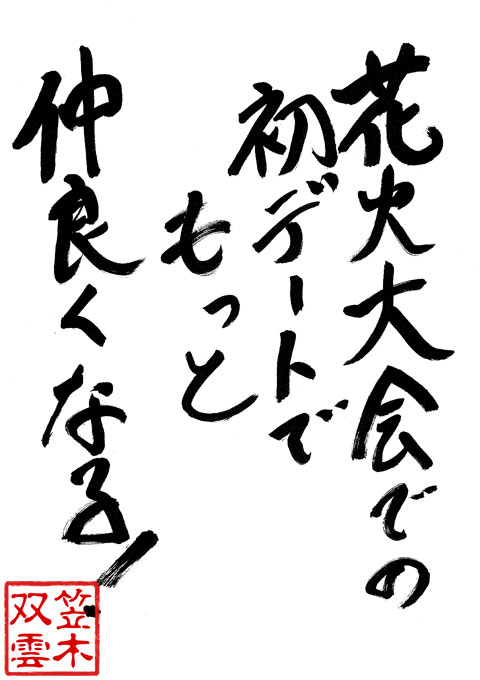 花火大会での
初デートで
もっと
仲良くなる!
笠木
双雲